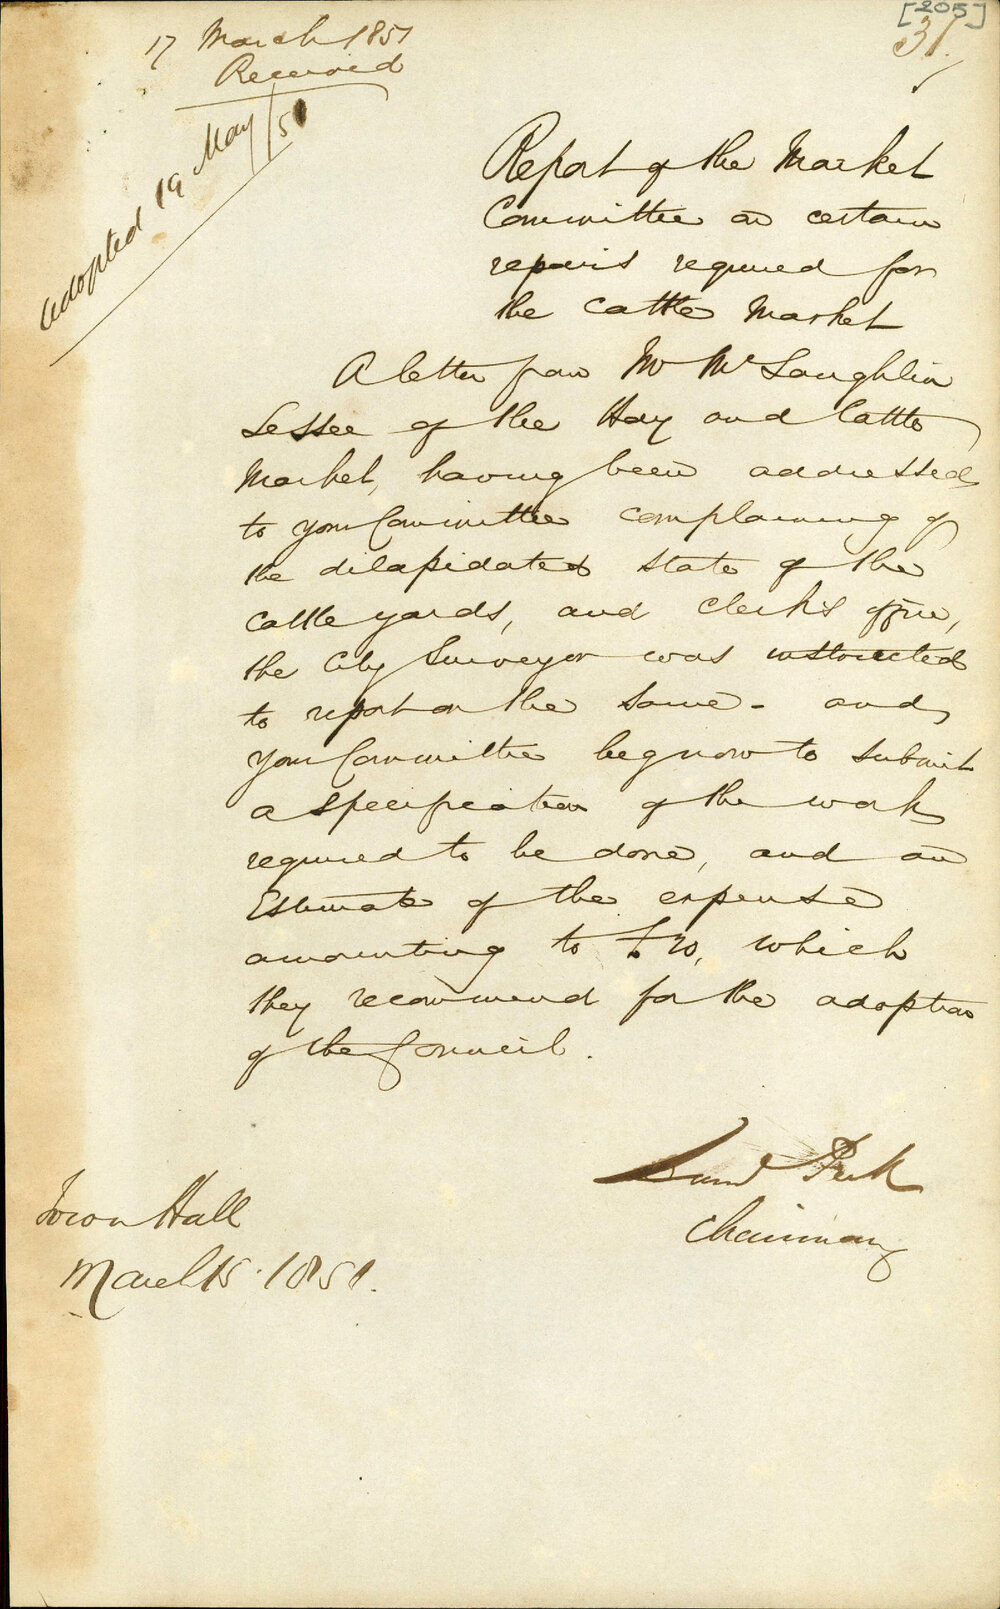 [205]
31.
17 March 1851
Received
Adopted 19 May/51
Report of the Market
Committee on certain
repairs required for
the Cattle Market
A letter from Mr McLaughlin
Lessee of the Hay and Cattle
Market, having been addressed
to your Committee complaining of
the dilapidated state of the
Cattle yards, and Clerk's office,
the City Surveyor was instructed
to report on the same - and
your Committee beg now to submit
a specification of the work
required to be done, and an
Estimate of the expense
amounting to £20, which
they recommend for the adoption
of the Council.
Saml Peek
Chairman
Town Hall
March 15. 1851.